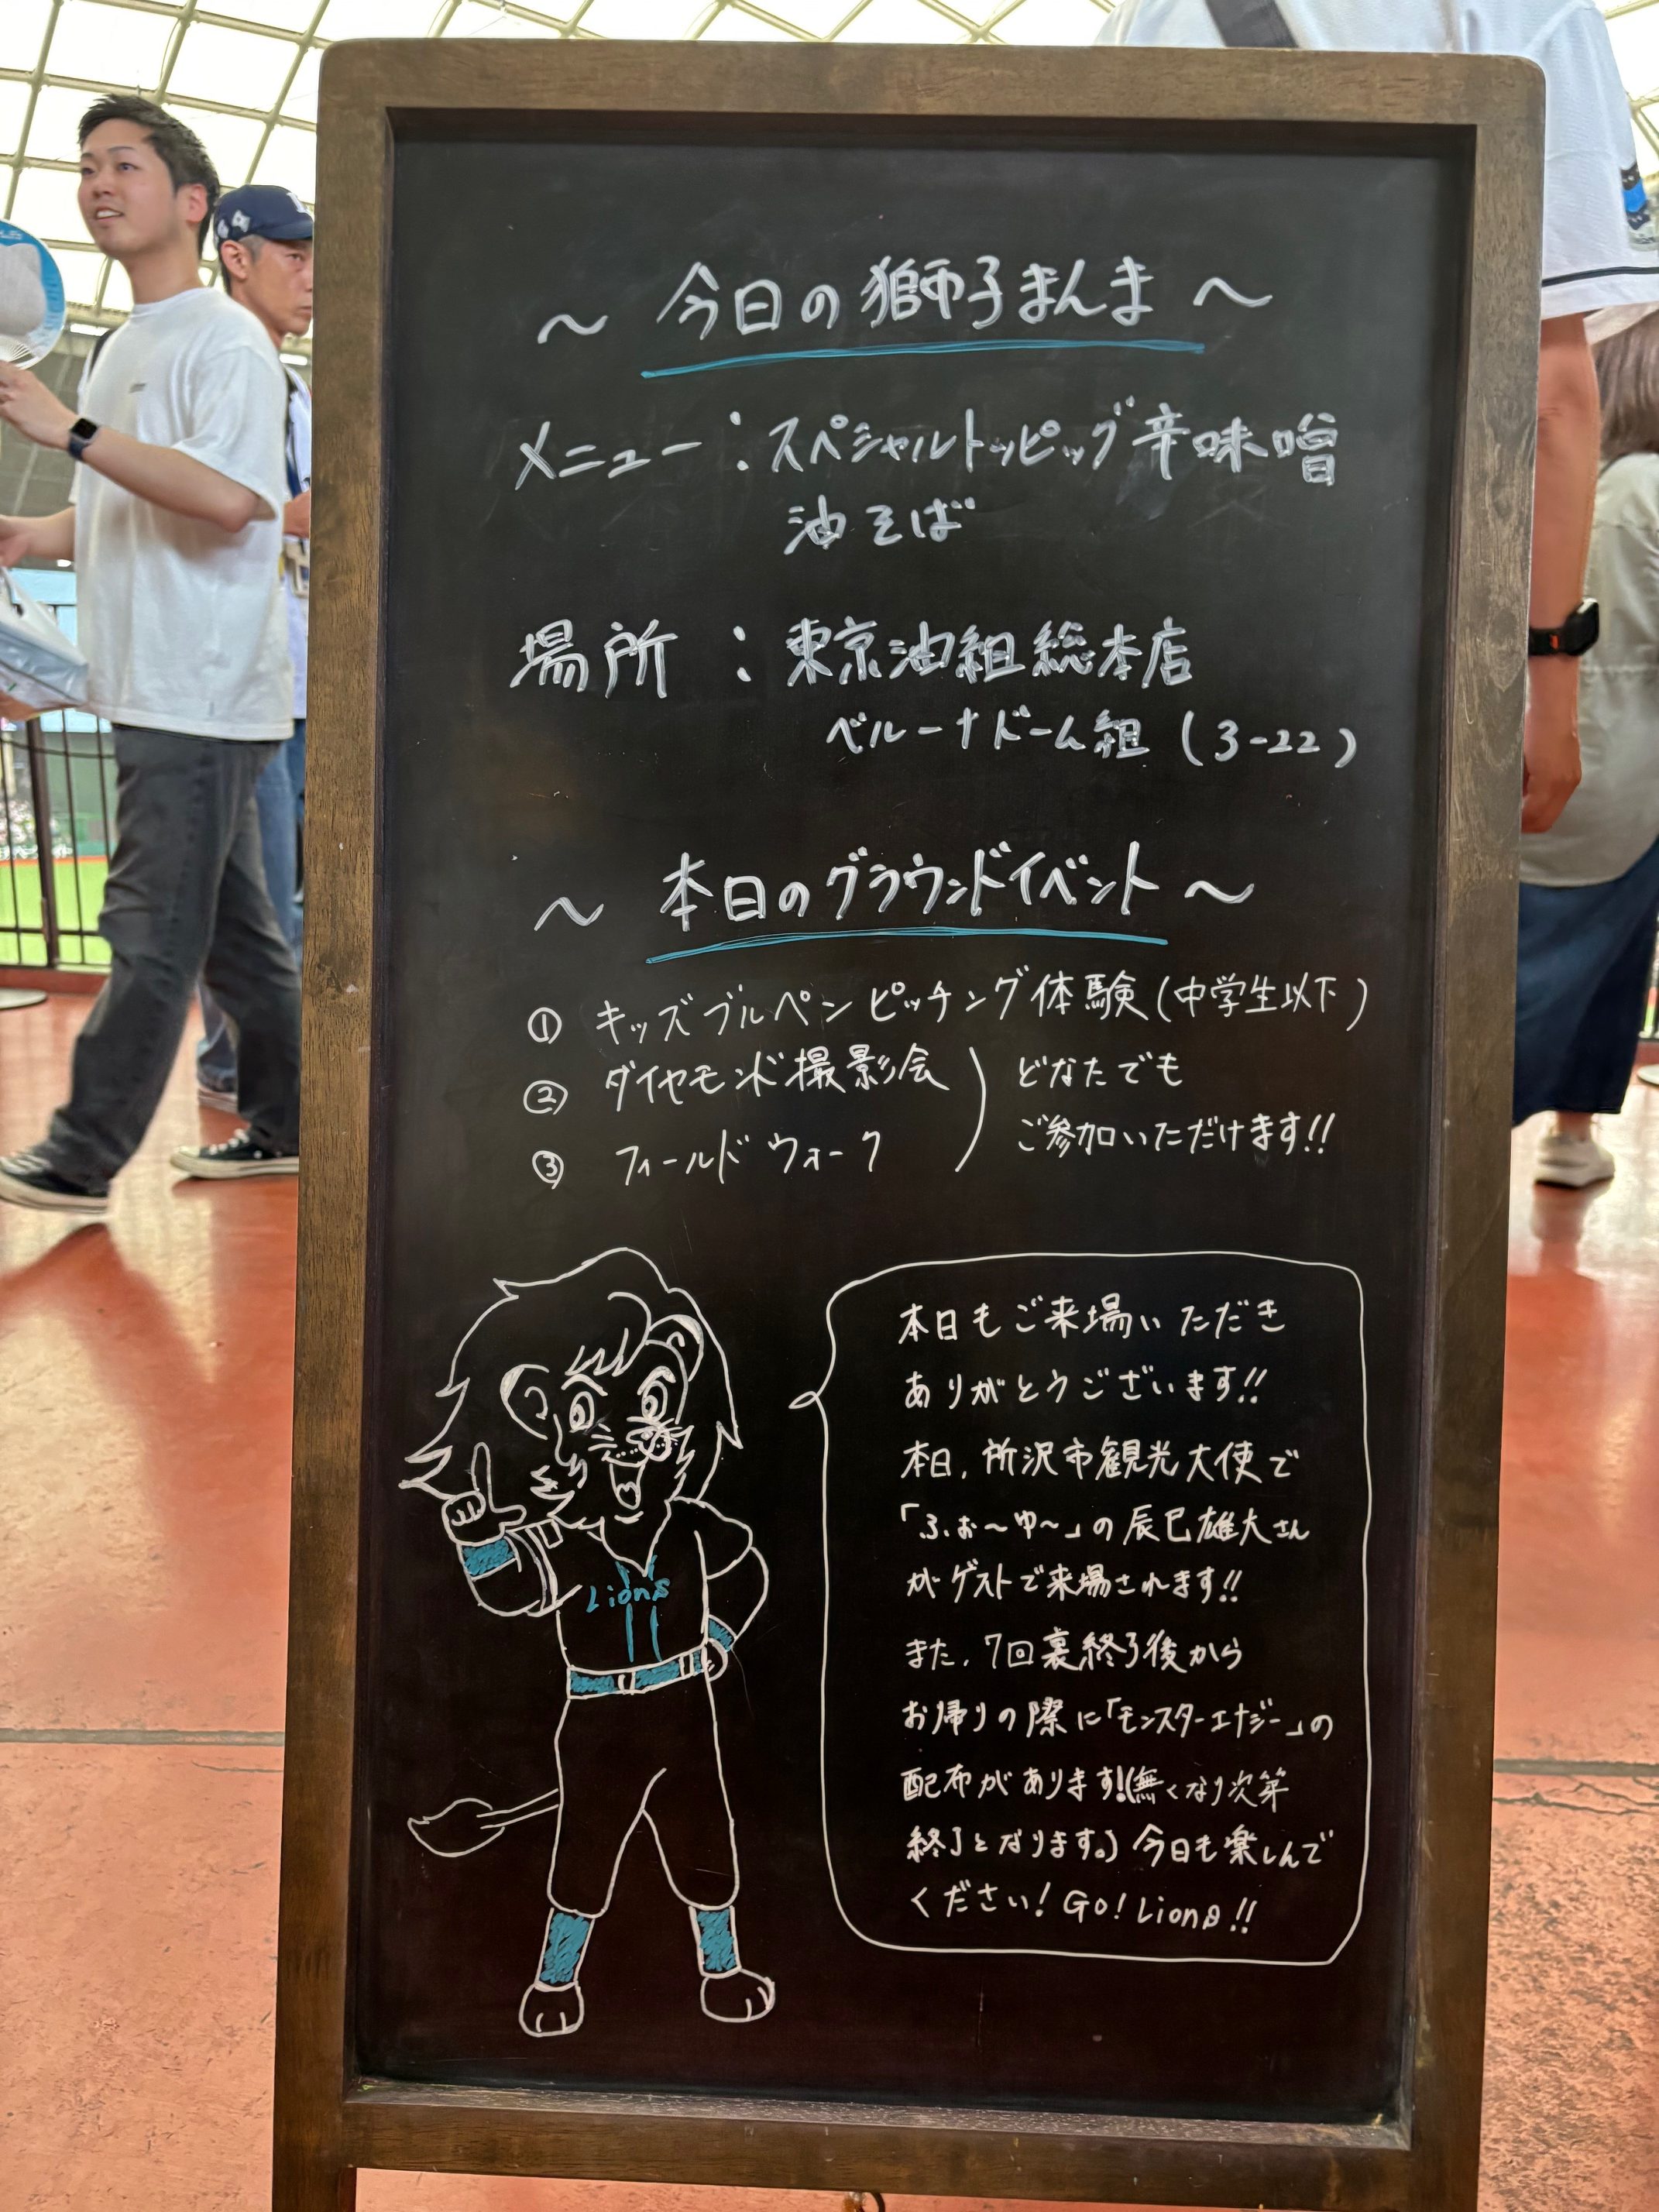 ～ 今日の獅子まんま ～
メニュー：スペシャルトッピッグ辛味噌
油そば
場所：東京油組総本店
ベルーナドーム組（3-22）
～ 本日のグラウンドイベント ～
① キッズブルペンピッチング体験（中学生以下）
② ダイヤモンド撮影会
③ フィールドウォーク
どなたでも
ご参加いただけます!!
本日もご来場いただき
ありがとうございます!!
本日、所沢市観光大使で
「ふぉ～ゆ～」の辰巳雄大さん
がゲストで来場されます!!
また、7回裏終了後から
お帰りの際に「モンスターエナジー」の
配布があります!(無くなり次第
終了となります。) 今日も楽しんで
ください! Go! Lions!!
Lions